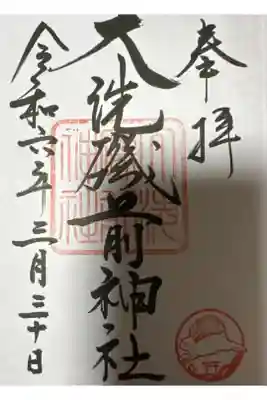 奉拝
大洗磯前神社
令和六年三月三十日